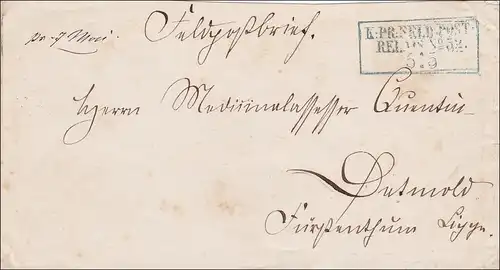 pr. 7 Mai.
Feldpostbrief.
K:PR:FELD-POST-
RELAIS No 52.
5 5
Herrn Medicinalassessor Quentin
Detmold
Fürstenthum Lippe.